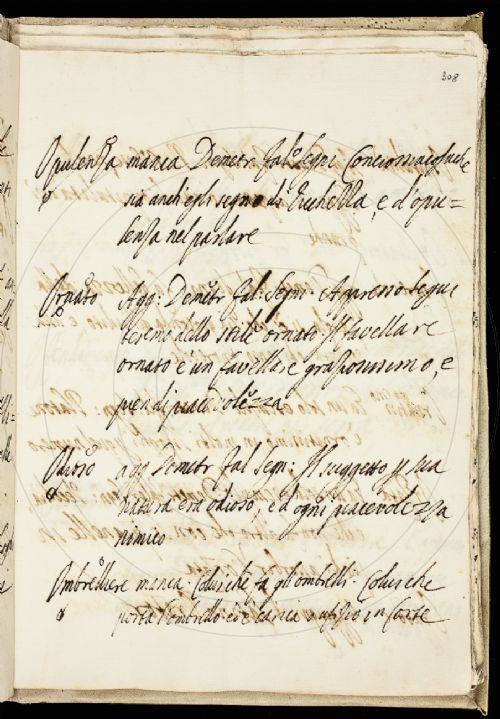 308
Opulenza manca Demetr. fal. Segni
sia anch'egli segno di e d'opu=
lenza nel parlare
Ornato Agg: Demetr. fal: Segni
dello stile ornato. Il favellare
ornato è un favellare graziosissimo, e
pien di piacevolezza
Odioso agg Demetr fal Segn: Il suggetto p sua
natura era odioso, e d'ogni piacevolezza
nimico
Ombrellere manca. Colui che fa gli ombrelli. Colui che
porta l'ombrello ed è carica o ufizio in Corte